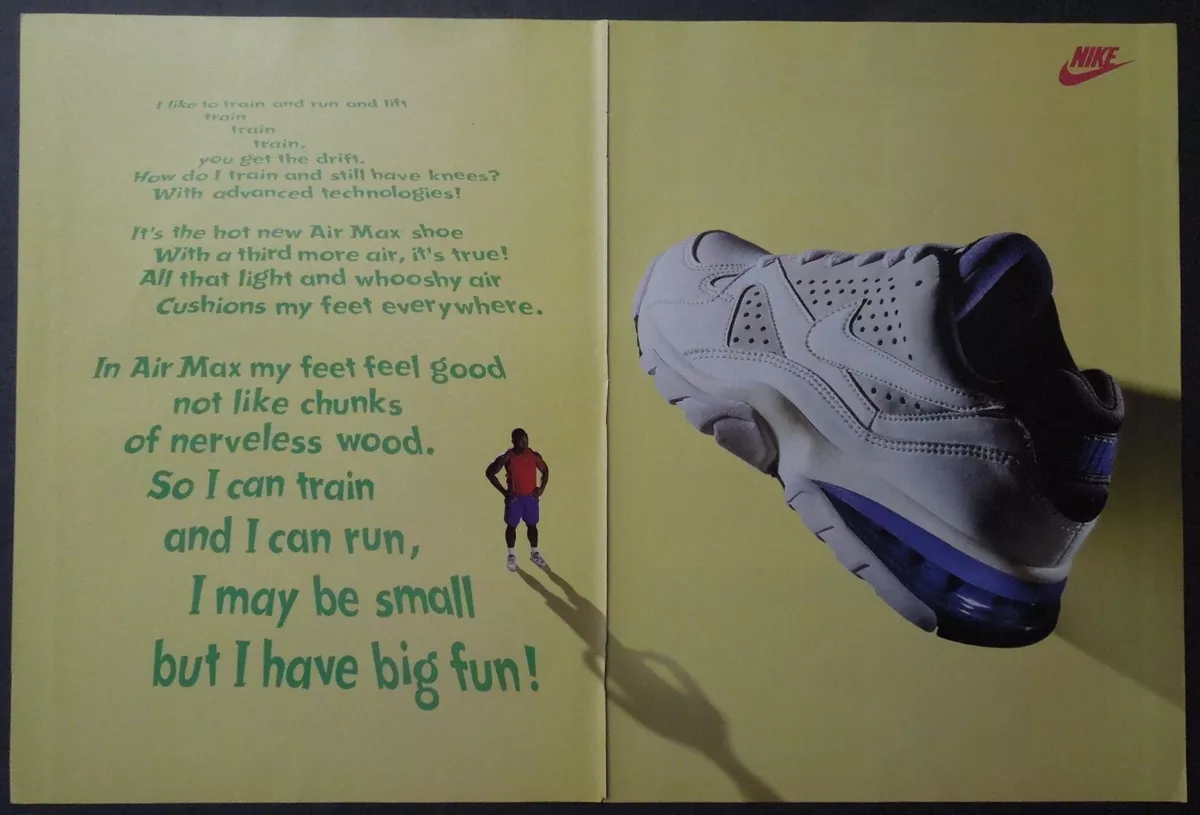 I like to train and run and lift
train
train
train,
you get the drift.
How do I train and still have knees?
With advanced technologies!
It's the hot new Air Max shoe
With a third more air, it's true!
All that light and whooshy air
Cushions my feet everywhere.
In Air Max my feet feel good
not like chunks
of nerveless wood.
So I can train
and I can run,
I may be small
but I have big fun!
NIKE